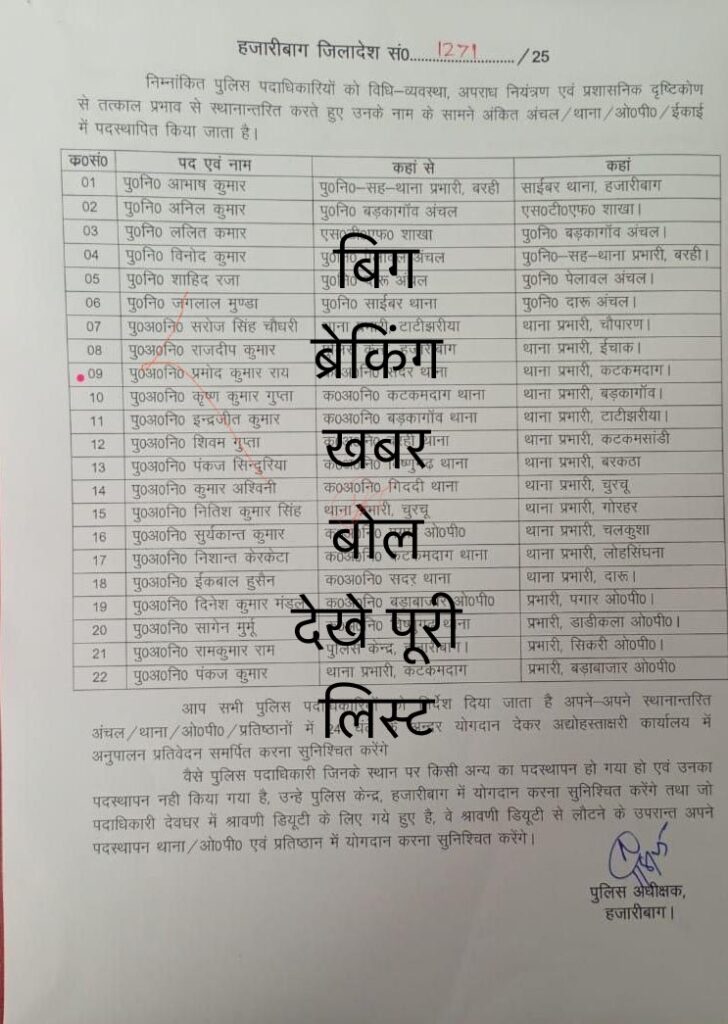 हजारीबाग जिलादेश सं0.....1271...../25
निम्नांकित पुलिस पदाधिकारियों को विधि–व्यवस्था, अपराध नियंत्रण एवं प्रशासनिक दृष्टिकोण
से तत्काल प्रभाव से स्थानान्तरित करते हुए उनके नाम के सामने अंकित अंचल/थाना/ओ0पी0/ईकाई
में पदस्थापित किया जाता है।
क0सं0 पद एवं नाम कहां से कहां
01 पु0नि0 आभाष कुमार पु0नि0–सह–थाना प्रभारी, बरही साईबर थाना, हजारीबाग
02 पु0नि0 अनिल कुमार पु0नि0 बड़कागाँव अंचल एस0टी0एफ0 शाखा।
03 पु0नि0 ललित कमार एस0टी0एफ0 शाखा पु0नि0 बड़कागाँव अंचल।
04 पु0नि0 विनोद कुमार पु0नि0 पेलावल अंचल पु0नि0–सह–थाना प्रभारी, बरही।
05 पु0नि0 शाहिद रजा पु0नि0 दारू अंचल पु0नि0 पेलावल अंचल।
06 पु0नि0 जगलाल मुण्डा पु0नि0 साईबर थाना पु0नि0 दारू अंचल।
07 पु0अ0नि0 सरोज सिंह चौधरी थाना प्रभारी, टाटीझरीया थाना प्रभारी, चौपारण।
08 पु0अ0नि0 राजदीप कुमार हजारीबाग थाना प्रभारी, ईचाक।
09 पु0अ0नि0 प्रमोद कुमार राय सदर थाना थाना प्रभारी, कटकमदाग।
10 पु0अ0नि0 कृष्ण कुमार गुप्ता क0अ0नि0 कटकमदाग थाना थाना प्रभारी, बड़कागाँव।
11 पु0अ0नि0 इन्द्रजीत कुमार क0अ0नि0 बड़कागाँव थाना थाना प्रभारी, टाटीझरीया।
12 पु0अ0नि0 शिवम गुप्ता क0अ0नि0 बरही थाना थाना प्रभारी, कटकमसांडी
13 पु0अ0नि0 पंकज सिन्दुरिया क0अ0नि0 विष्णुगढ़ थाना थाना प्रभारी, बरकठा
14 पु0अ0नि0 कुमार अश्विनी क0अ0नि0 गिददी थाना थाना प्रभारी, चुरचू
15 पु0अ0नि0 नितिश कुमार सिंह थाना प्रभारी, चुरचू थाना प्रभारी, गोरहर
16 पु0अ0नि0 सुर्यकान्त कुमार ओ0पी0 थाना प्रभारी, चलकुशा
17 पु0अ0नि0 निशान्त केरकेटा क0अ0नि0 कटकमदाग थाना थाना प्रभारी, लोहसिंघना
18 पु0अ0नि0 ईकबाल हुसैन क0अ0नि0 सदर थाना थाना प्रभारी, दारू।
19 पु0अ0नि0 दिनेश कुमार मंडल क0अ0नि0 बड़ाबाजार ओ0पी0 प्रभारी, पगार ओ0पी0।
20 पु0अ0नि0 सागेन मुर्मू थाना प्रभारी, डाडीकला ओ0पी0।
21 पु0अ0नि0 रामकुमार राम पुलिस केन्द्र, हजारीबाग। प्रभारी, सिकरी ओ0पी0।
22 पु0अ0नि0 पंकज कुमार थाना प्रभारी, कटकमदाग प्रभारी, बड़ाबाजार ओ0पी0
बिग
ब्रेकिंग
खबर
बोल
देखे पूरी
लिस्ट
आप सभी पुलिस पदाधिकारियों को निर्देश दिया जाता है अपने–अपने स्थानान्तरित
अंचल/थाना/ओ0पी0/प्रतिष्ठानों में 24 अन्दर योगदान देकर अद्योहस्ताक्षरी कार्यालय में
अनुपालन प्रतिवेदन समर्पित करना सुनिश्चित करेंगे
वैसे पुलिस पदाधिकारी जिनके स्थान पर किसी अन्य का पदस्थापन हो गया हो एवं उनका
पदस्थापन नही किया गया है, उन्हे पुलिस केन्द्र, हजारीबाग में योगदान करना सुनिश्चित करेंगे तथा जो
पदाधिकारी देवघर में श्रावणी डियूटी के लिए गये हुए है, वे श्रावणी डियूटी से लौटने के उपरान्त अपने
पदस्थापन थाना/ओ0पी0 एवं प्रतिष्ठान में योगदान करना सुनिश्चित करेंगे।
पुलिस अधीक्षक,
हजारीबाग।